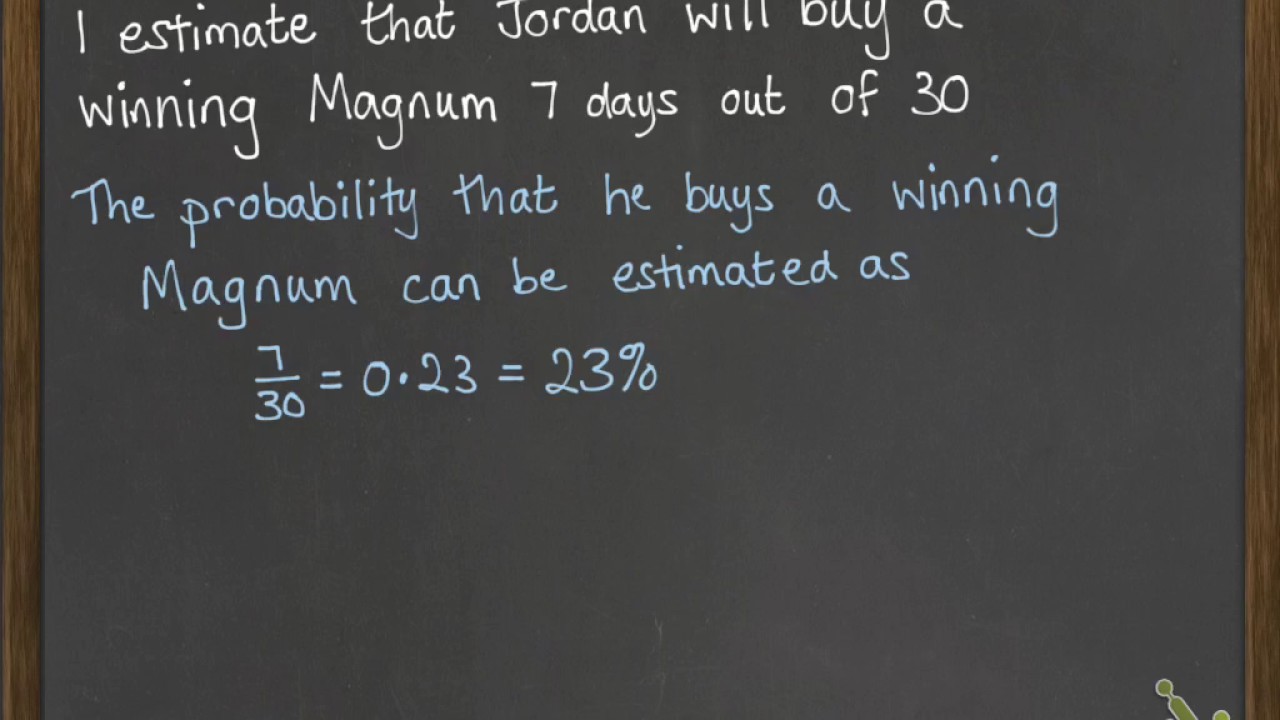 I estimate that Jordan will buy a
winning Magnum 7 days out of 30
The probability that he buys a winning
Magnum can be estimated as
7/30 = 0.23 = 23%